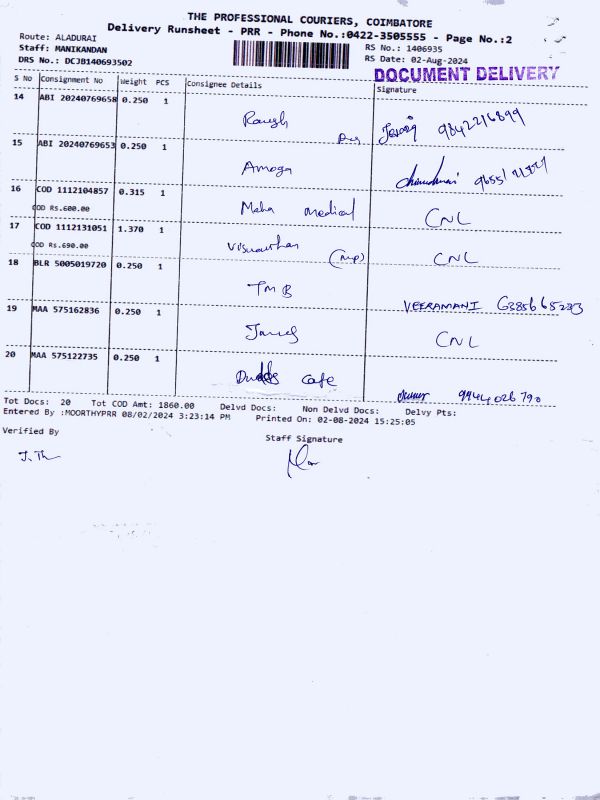 THE PROFESSIONAL COURIERS, COIMBATORE
Delivery Runsheet - PRR - Phone No.:0422-3505555 - Page No.:2
Route: ALADURAI
Staff: MANIKANDAN
DRS No.: DCJB140693502
RS No.: 1406935
RS Date: 02-Aug-2024
DOCUMENT DELIVERY
S No Consignment No Weight PCS Consignee Details Signature
14 ABI 20240769658 0.250 1
9842216899
15 ABI 20240769653 0.250 1 Amoga
16 COD 1112104857 0.315 1 Maha medical CNL
COD Rs.600.00
17 COD 1112131051 1.370 1 (mp) CNL
COD Rs.690.00
18 BLR 5005019720 0.250 1 TMB VEERAMANI
19 MAA 575162836 0.250 1 James CNL
20 MAA 575122735 0.250 1 cafe 9944026790
Tot Docs: 20 Tot COD Amt: 1860.00 Delvd Docs: Non Delvd Docs: Delvy Pts:
Entered By :MOORTHYPRR 08/02/2024 3:23:14 PM Printed On: 02-08-2024 15:25:05
Verified By
Staff Signature